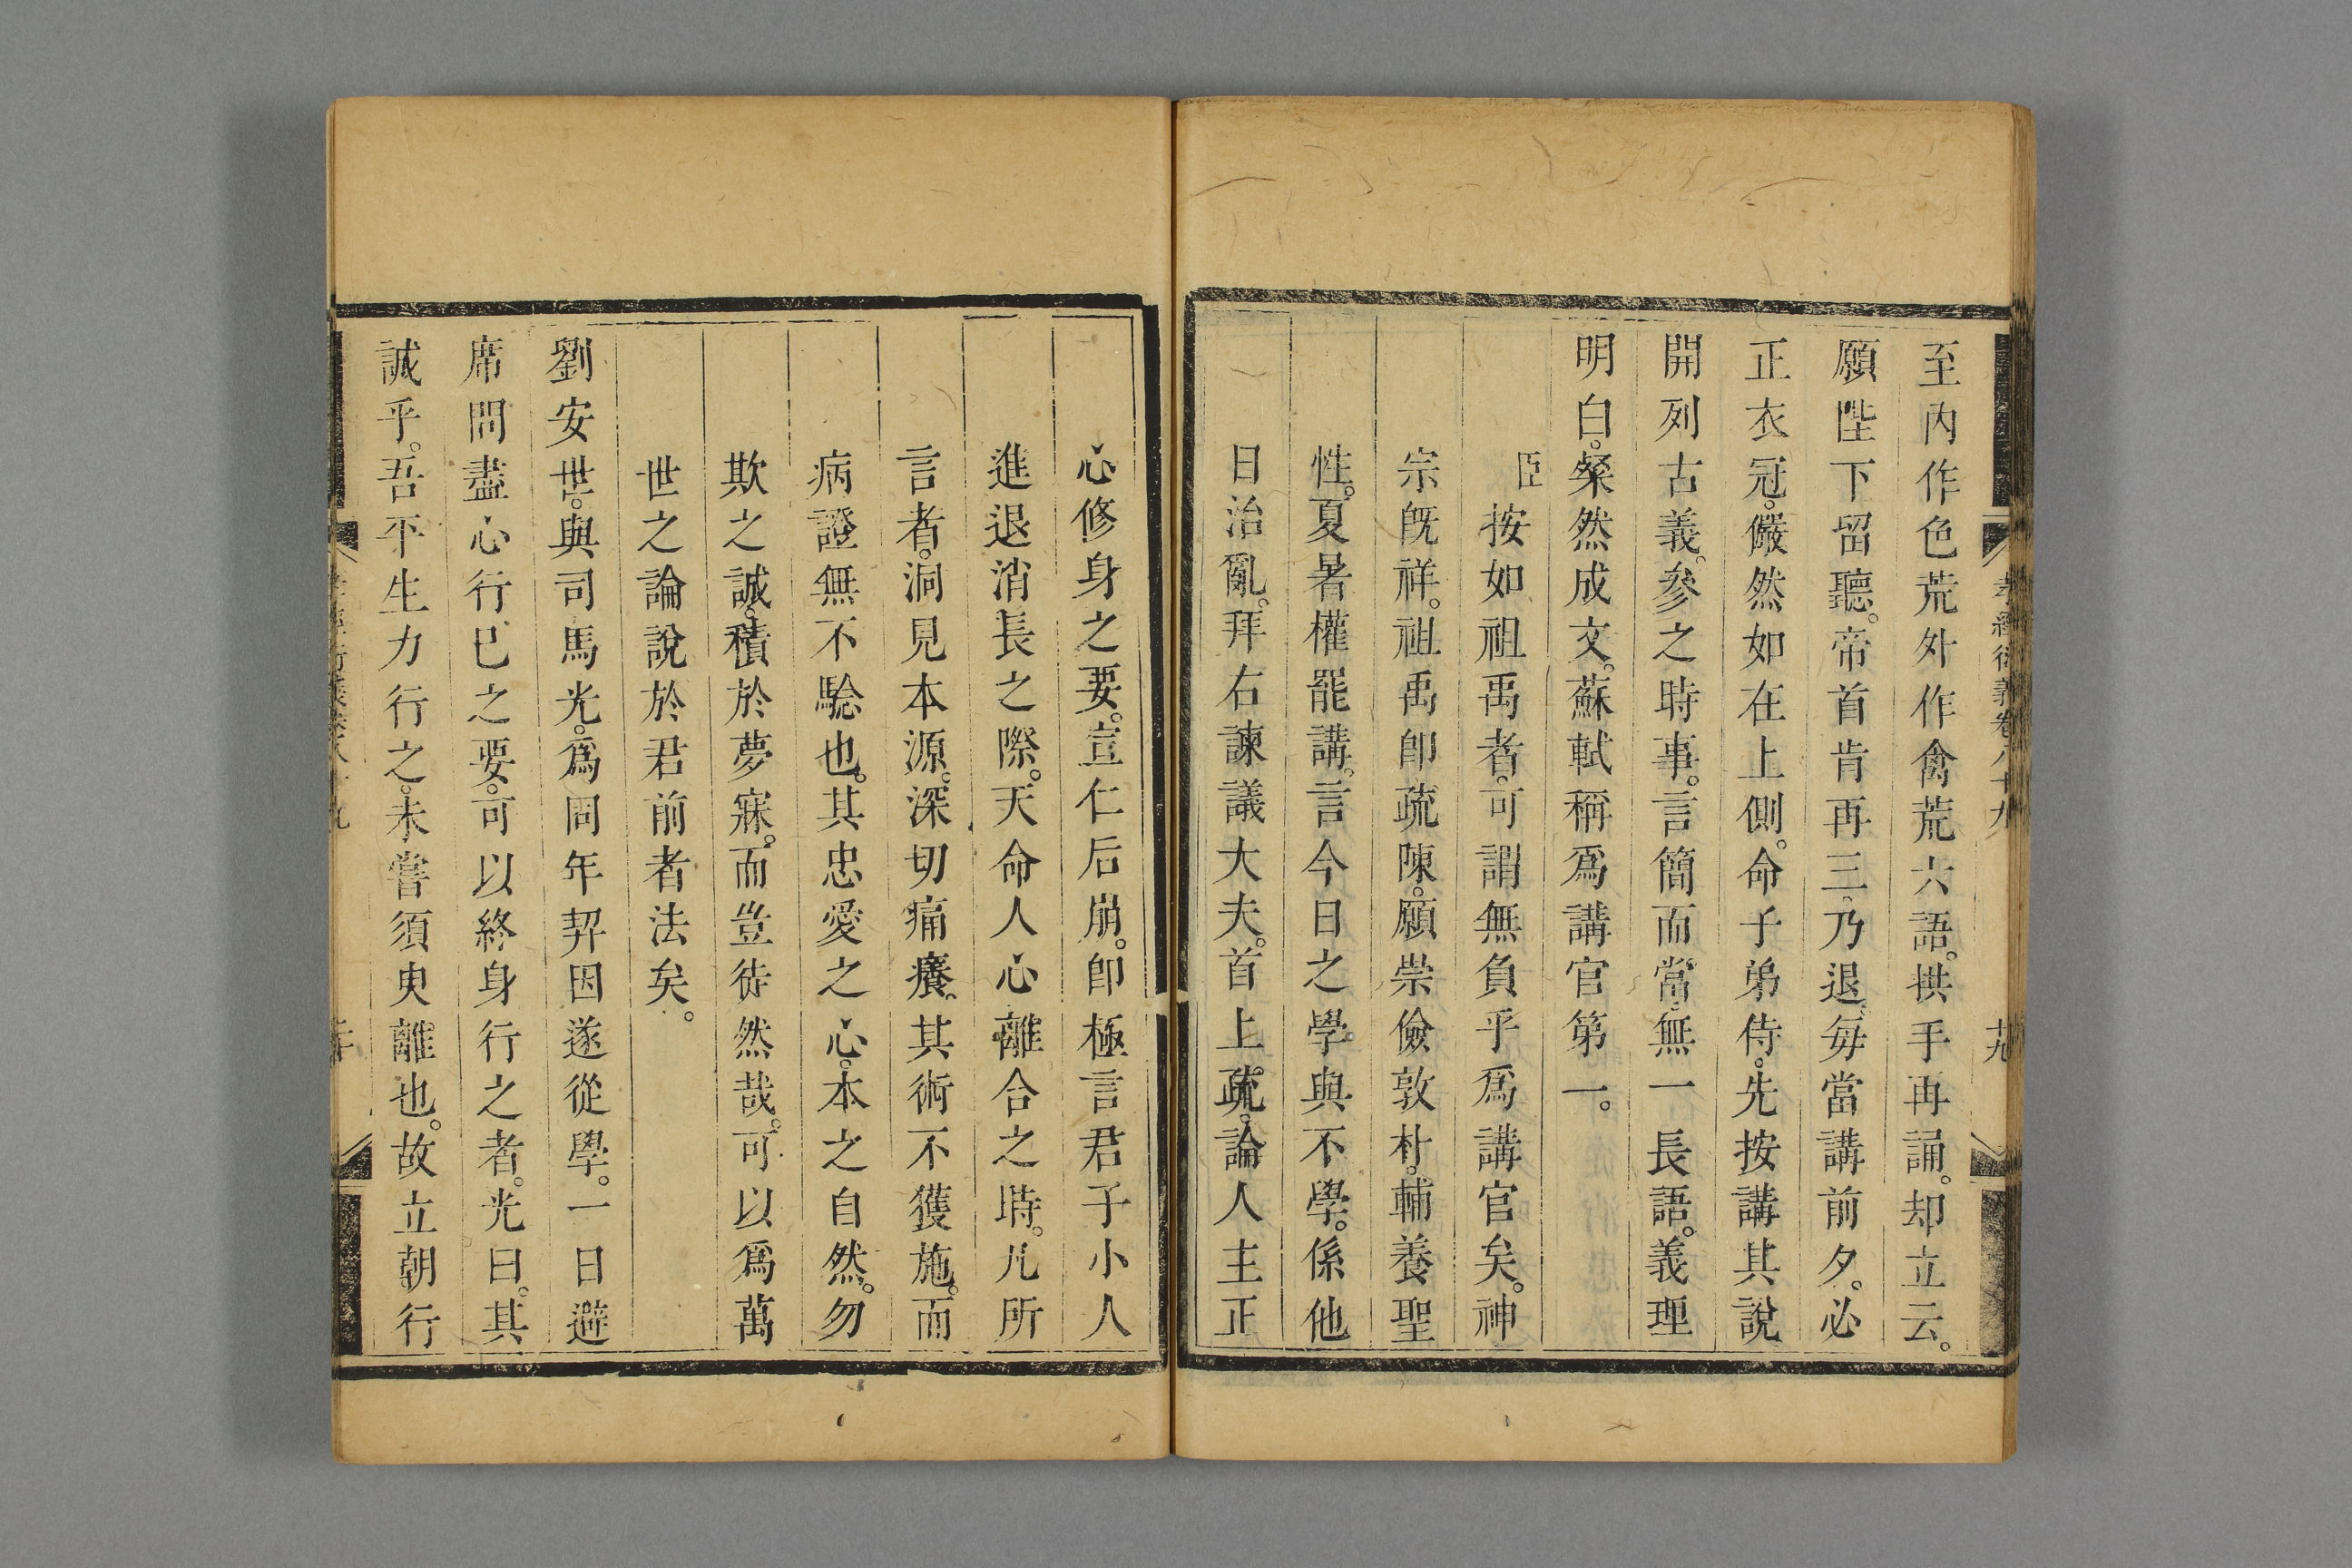 孝經衍義卷八十九 十九
至內作色荒外作禽荒六語。拱手再誦。却立云。
願陛下留聽。帝首肯再三。乃退。每當講前夕。必
正衣冠。儼然如在上側。命子弟侍。先按講其說
開列古義。參之時事。言簡而當。無一長語。義理
明白。粲然成文。蘇軾稱爲講官第一。
臣按如祖禹者。可謂無負乎爲講官矣。神
宗旣祥。祖禹卽疏陳。願崇儉敦朴。輔養聖
性。夏暑權罷講。言今日之學。與不學。係他
日治亂。拜右諫議大夫。首上疏。論人主正
心修身之要。宣仁后崩。卽極言君子小人
進退消長之際。天命人心離合之時。凡所
言者。洞見本源。深切痛癢。其術不獲施。而
病證無不驗也。其忠愛之心。本之自然。勿
欺之誠。積於夢寐。而豈徒然哉。可以爲萬
世之論說於君前者法矣。
劉安世。與司馬光。爲同年契因遂從學。一日避
席問盡心行已之要。可以終身行之者。光曰。其
誠乎。吾平生力行之。未嘗須臾離也。故立朝行